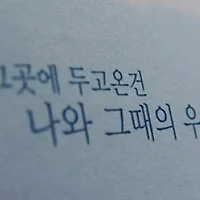 그곳에 두고온건
나와 그때의 우